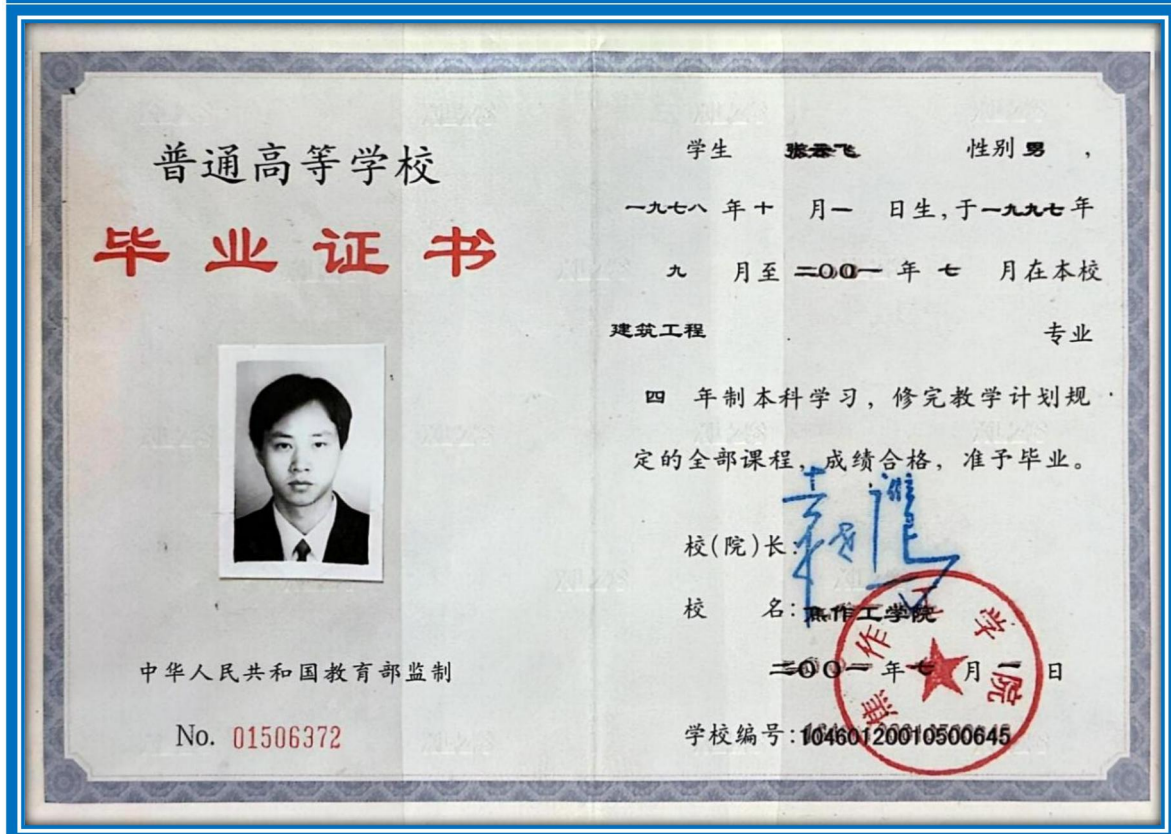 普通高等学校
毕业证书
中华人民共和国教育部监制
No. 01506372
学生 张云飞 性别 男 ,
一九七八 年 十 月 一 日生, 于 一九九七 年
九 月至 二〇〇一 年 七 月在本校
建筑工程 专业
四 年制本科学习, 修完教学计划规
定的全部课程, 成绩合格, 准予毕业。
校(院)长:
校 名: 焦作工学院
二〇〇一 年 七 月 一 日
学校编号: 10460120010500645
焦作工学院